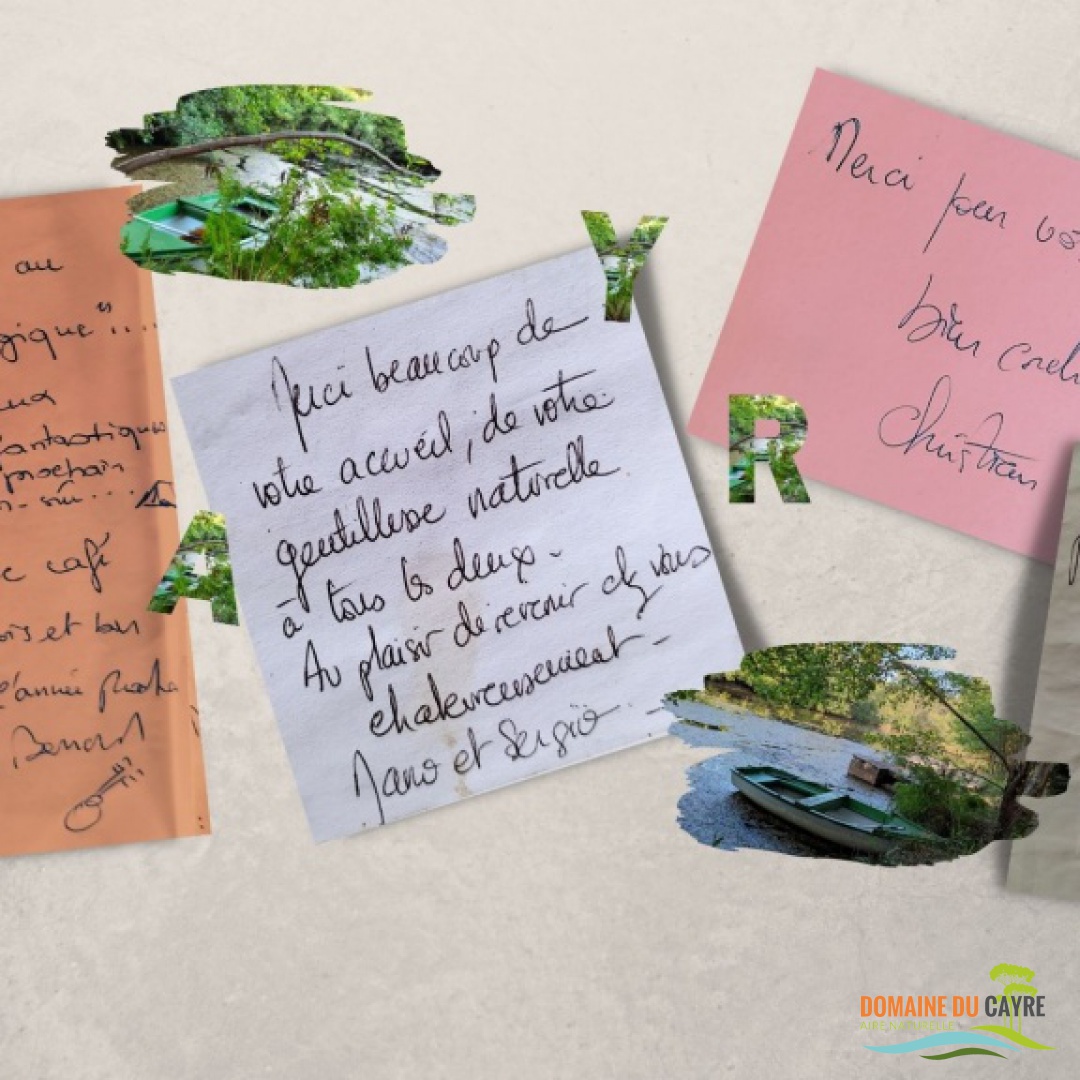 au
gique"....
ux
fantastiques
prochain
c café
ois et bon
l'année proch
Bernard
A
Merci beaucoup de
votre accueil, de votre
gentillesse naturelle
à tous les deux.
Au plaisir de revenir chez vous
chaleureusement -
Jano et Sergio. -
Y
R
Merci pour vo
bien cordi
Christian
DOMAINE DU CAYRE